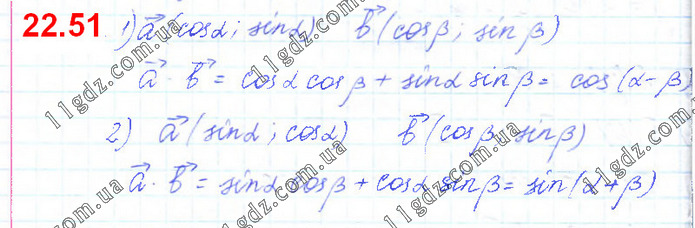 22.51 1) a⃗ (cosα; sinα) b⃗ (cosβ; sinβ)
a⃗ · b⃗ = cosα cosβ + sinα sinβ = cos(α-β)
2) a⃗ (sinα; cosα) b⃗ (cosβ; sinβ)
a⃗ · b⃗ = sinα cosβ + cosα sinβ = sin(α+β)
11gdz.com.ua
11gdz.com.ua
11gdz.com.ua
11gdz.com.ua
11gdz.com.ua